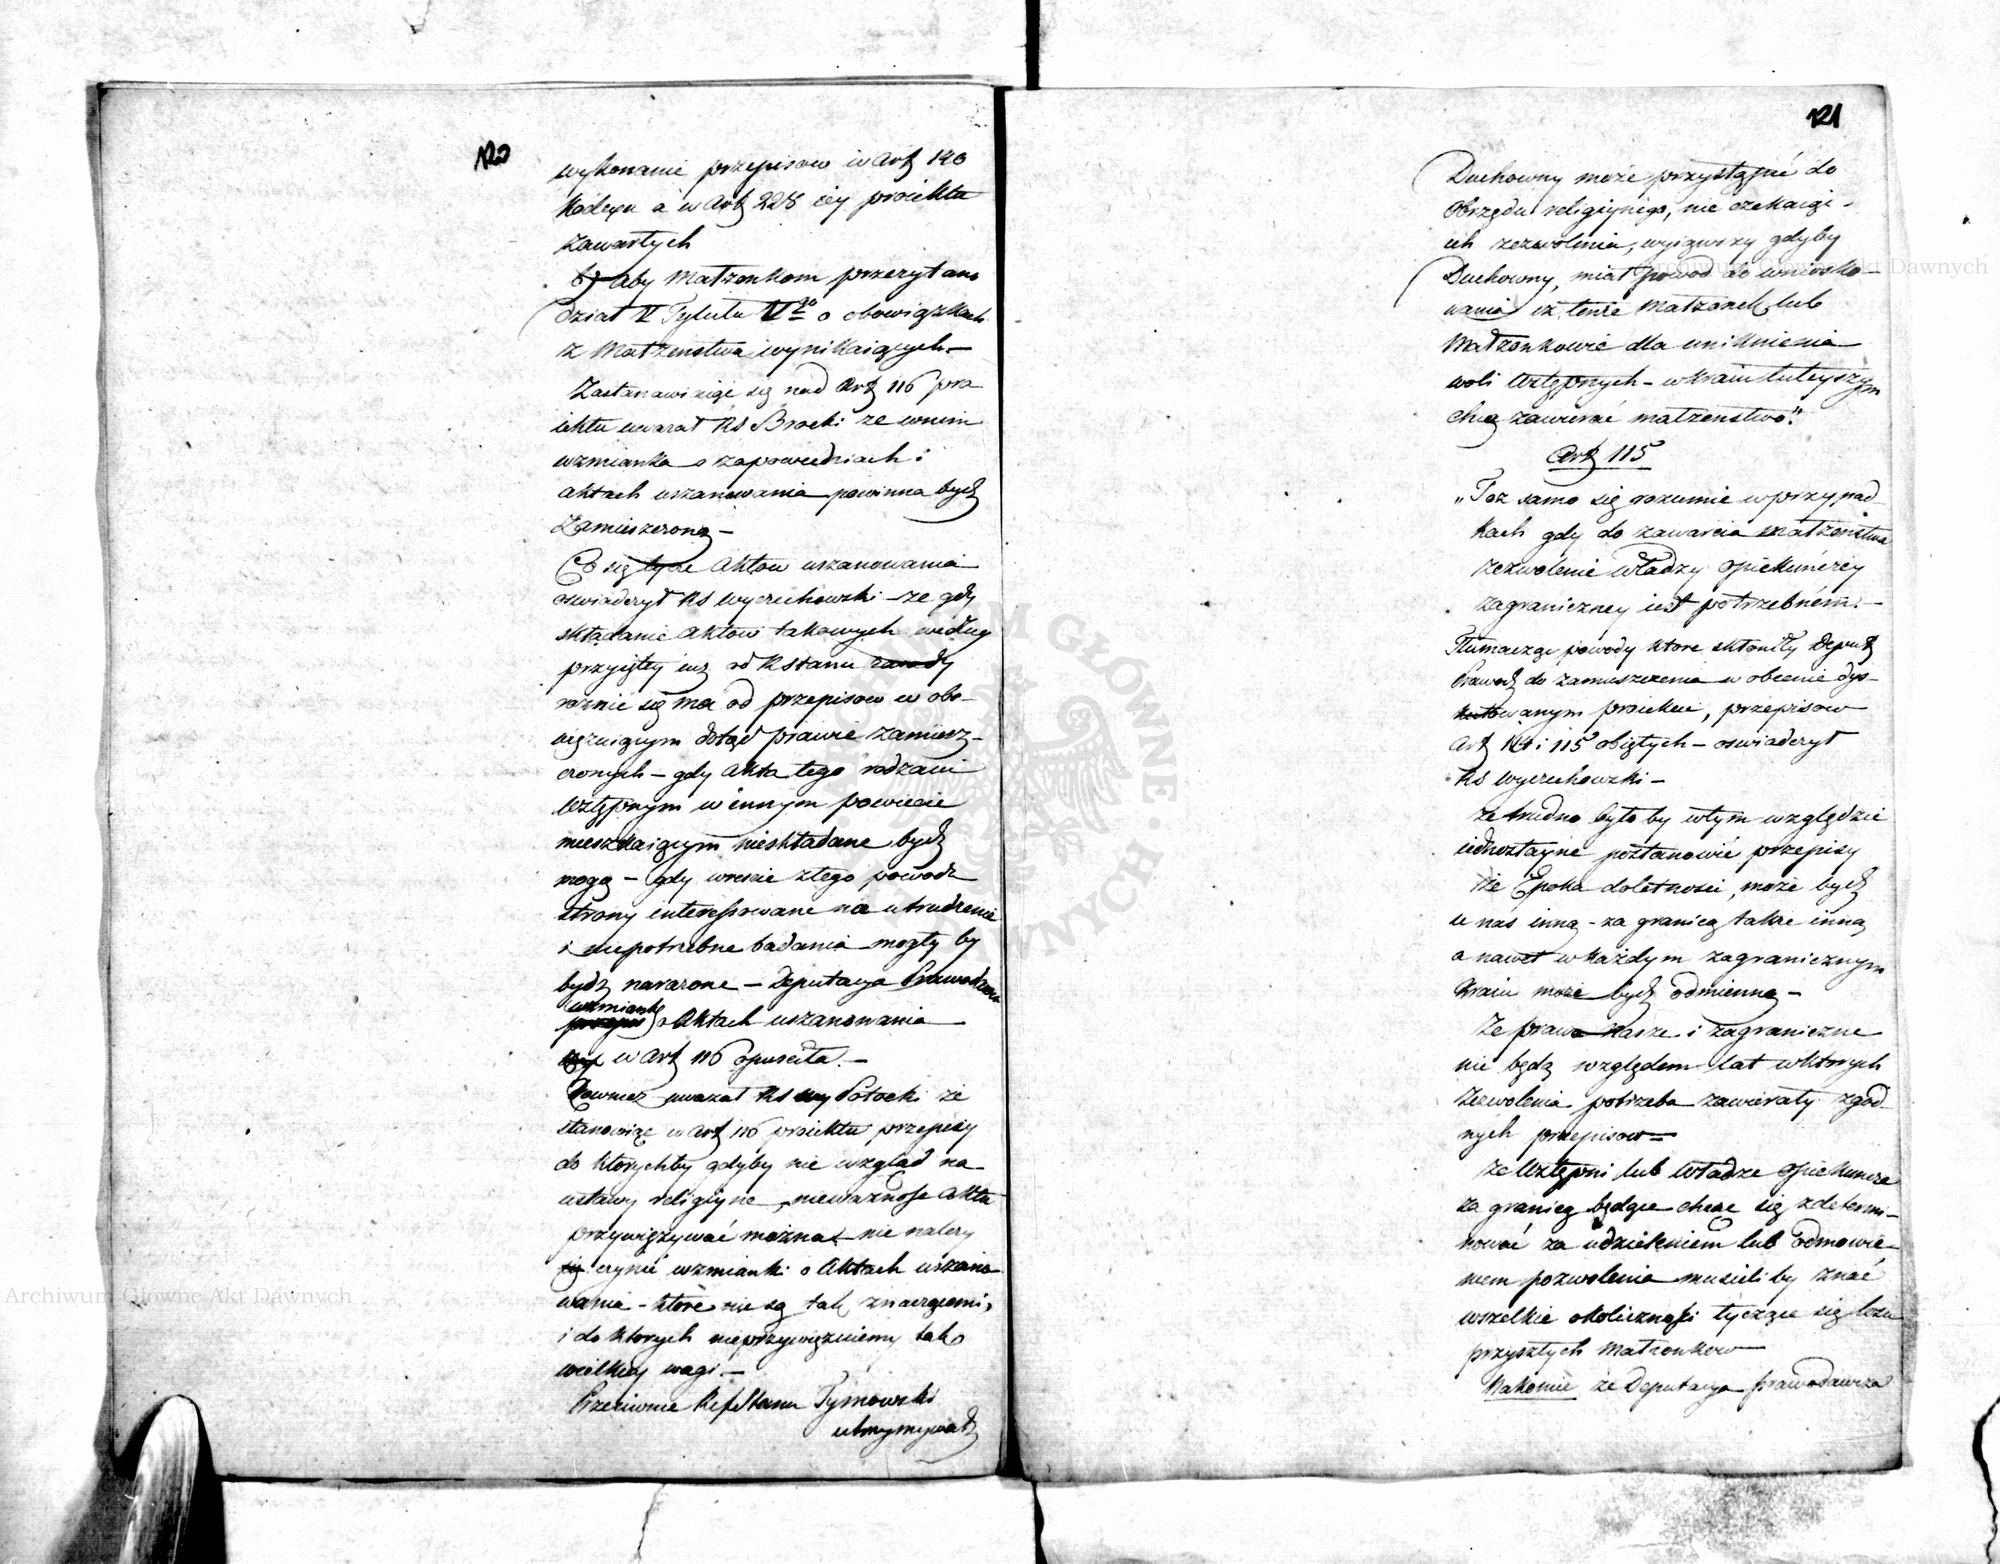 120
wykonanie przepisow w Art 148
Kodexu a w Art 228 tey proiektu
zawartych
b) aby Małzonkom przeczytano
dział VI Tytułu Vgo o obowiązkach
z Małzenstwa wynikaiących —
Zastanawiaiąc się nad Art 116 pro
iektu uwazał RS Brocki ze w nim
wzmianka o zapowiedziach i
Aktach uszanowania powinna bydź
zamieszczona —
Co się tycze Aktow uszanowania
oswiadczył RS Wyczechowski — ze gdy
składanie Aktow takowych według
przyięty iuz od RStanu zasady
roznic się ma od przepisow w obo-
wiązuiącym dotąd prawie zamiesz-
czonych — gdy Akta tego rodzaiu
Wstępnym w innym powiecie
mieszkaiącym nieskładane bydź
mogą — gdy wreszcie z tego powodu
strony interessowane na utrudzenie
i niepotrzebne badania mogły by
bydz narazone — Deputacya Prawodawcza
wzmiankę
przepis o Aktach uszanowania
w Art 116 opusciła. —
Rowniez uwazał RS wy Potocki ze
stanowiąc w Art 116 proiektu przepisy
do ktorychby gdyby nie wzgląd na
ustawy religiyne, niewaznosc Aktu
przywięzywać można — nie nalezy
czynić wzmianki o Aktach uszano
wania — które nie są tak znaczącemi,
i do ktorych nieprzywięzuiemy tak
wielkiey wagi. —
Przeciwnie RefStanu Tymowski
utrzymywał
121
Duchowny może przystąpić do
Obrzędu religiynego, nie czekaiąc
ich zezwolenia, wyiąwszy gdyby
Duchowny, miał powod do wniosko-
wania iz tenże Małzonek lub
Małzonkowie dla uniknienia
woli Wstępnych — w kraiu tuteyszym
chcą zawierać małzenstwo."
Art 115
„Toz samo się rozumie w przypad-
kach gdy do zawarcia małzenstwa
zezwolenie władzy opiekunczey
zagraniczney iest potrzebném. —
Tłumacząc powody ktore skłoniły Deput
Prawod do zamieszczenia w obecnie dys-
kutowanym proiekcie, przepisow
Art 114 i 115 obiętych — oswiadczył
RS Wyczechowski —
ze trudno było by w tym względzie
iednostayne postanowić przepisy
że Epoka doletnosci, może bydź
u nas inną — za granicą także inną
a nawet w każdym zagranicznym
Kraiu może bydź odmienną —
Ze prawa nasze i zagraniczne
nie będą względem lat w ktorych
Zezwolenia potrzeba zawierały zgod
nych przepisow —
ze Wstępni lub Władze opiekuncze
za granicą będące chcąc się zdetermi-
nować za udzieleniem lub odmowie-
niem pozwolenia musieli by znać
wszelkie okolicznosci tyczące się losu
przyszłych Małzonkow
Nakoniec ze Deputacya prawodawcza
Archiwum Główne Akt Dawnych
Archiwum Główne Akt Dawnych
ARCHIWUM GŁÓWNE AKT DAWNYCH